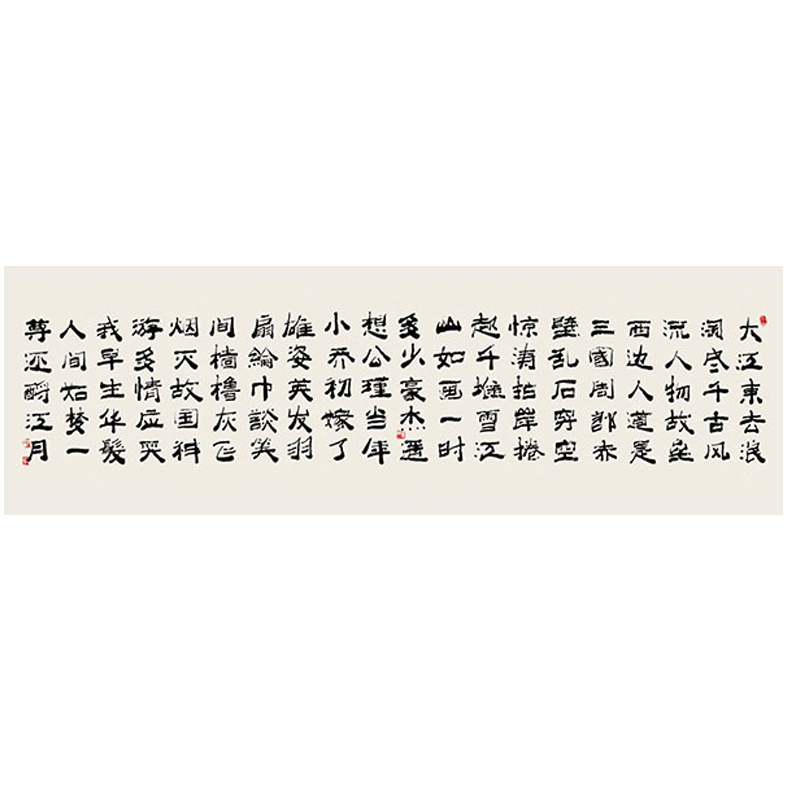 大江東去浪
淘尽千古风
流人物故垒
西边人道是
三國周郎赤
壁乱石穿空
惊涛拍岸捲
起千堆雪江
山如画一时
多少豪杰遥
想公瑾当年
小乔初嫁了
雄姿英发羽
扇綸巾談笑
间樯橹灰飞
烟灭故国神
游多情应笑
我早生华髮
人间如梦一
尊还酹江月